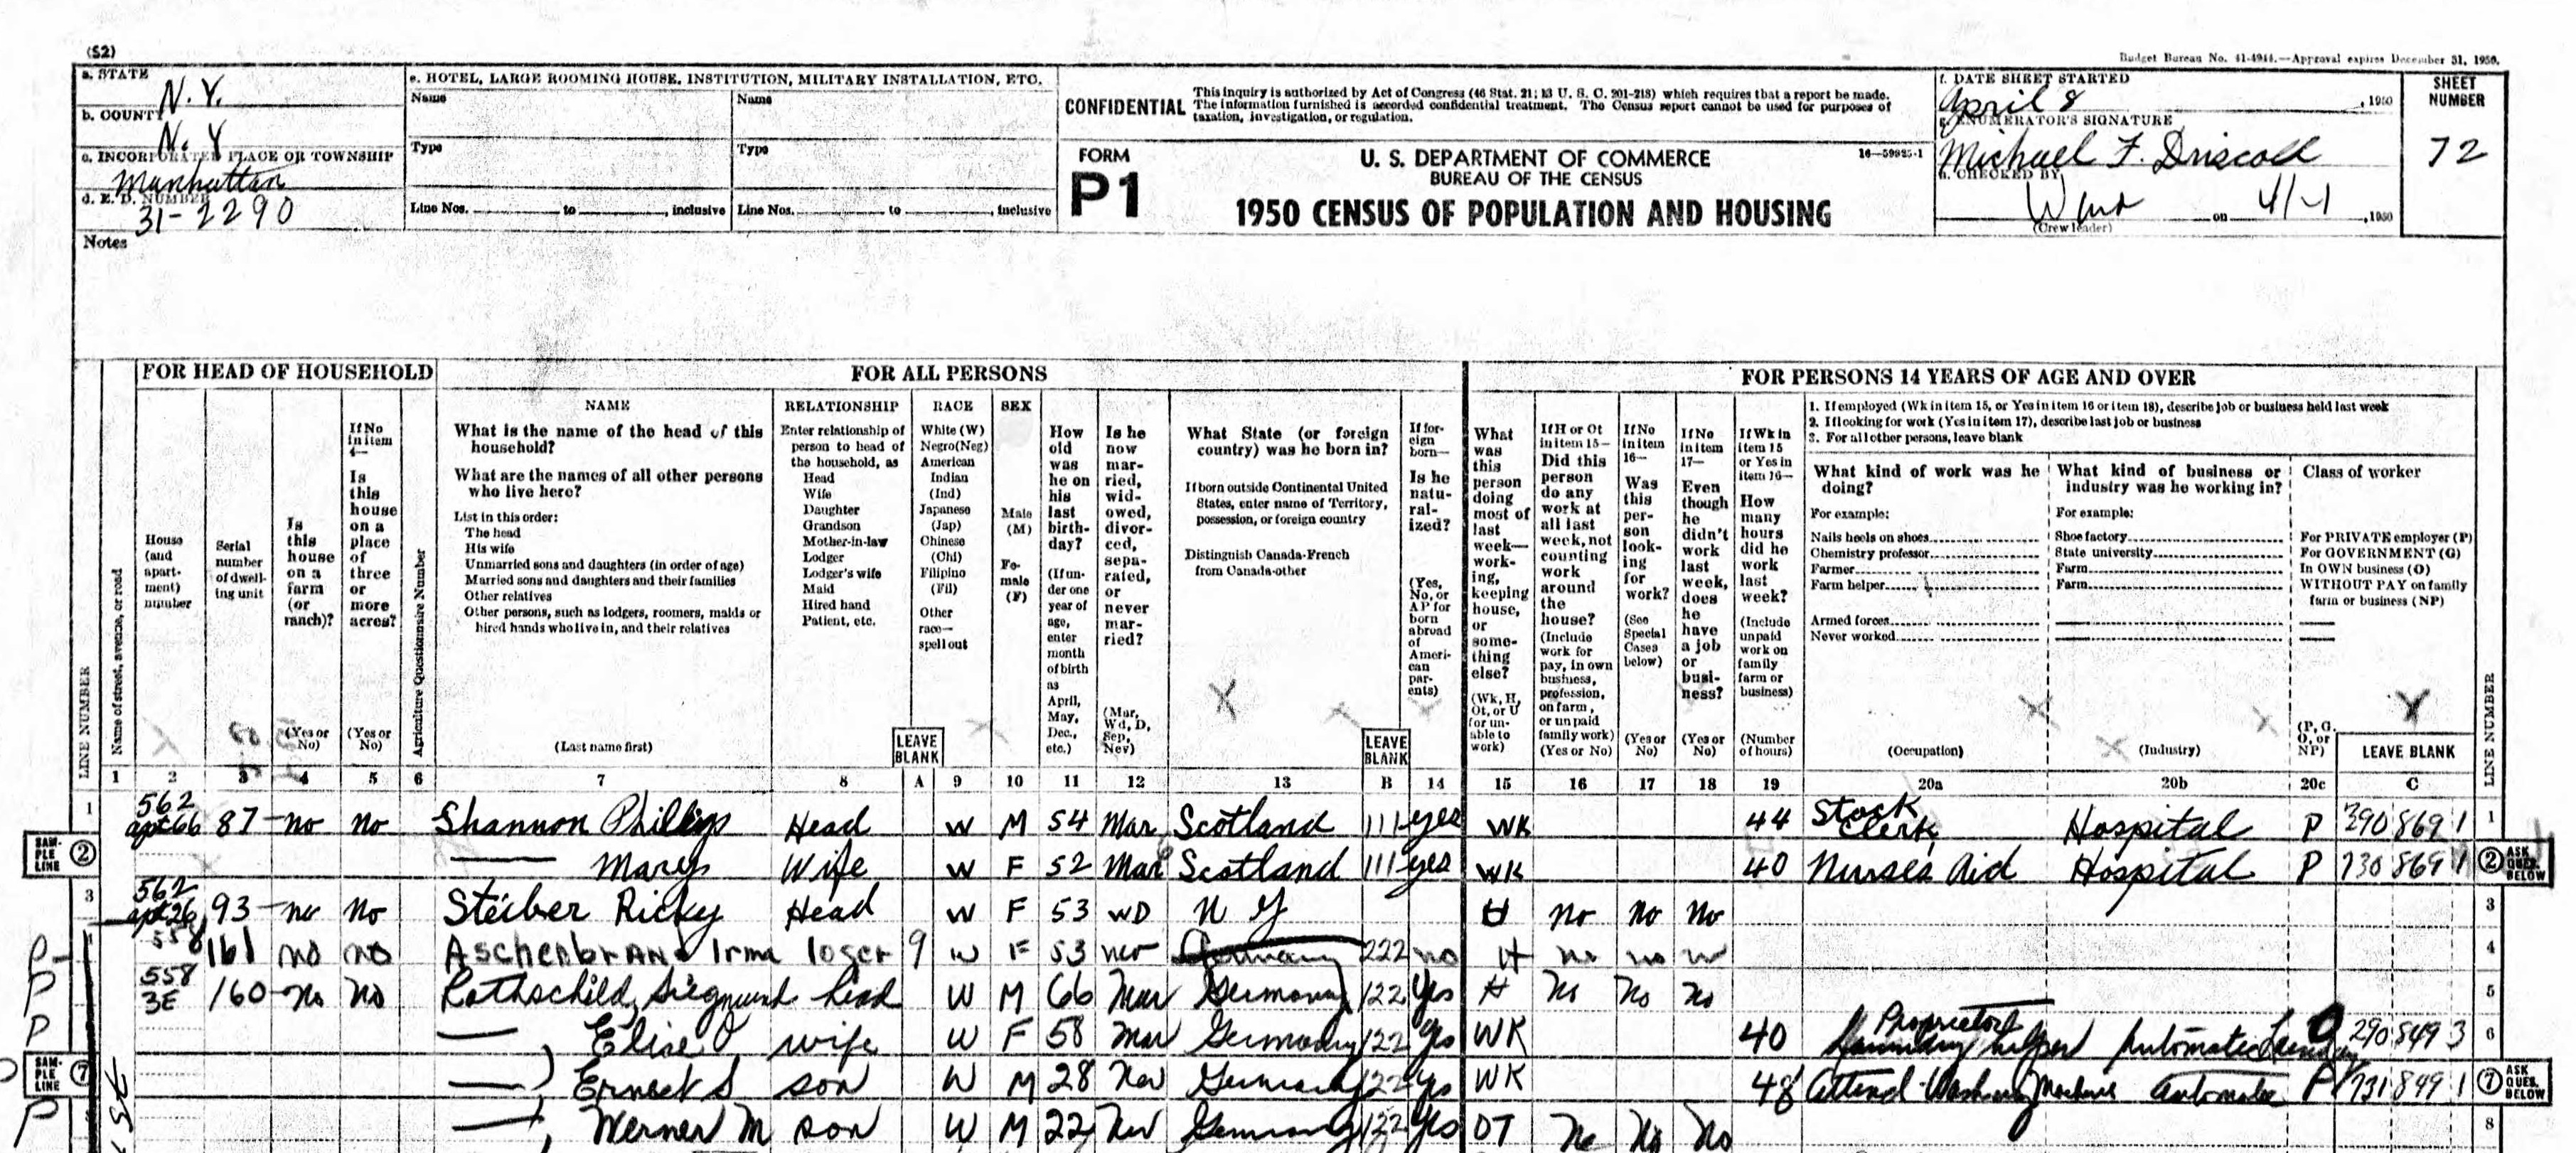 (S2)
Budget Bureau No. 41-4944.—Approval expires December 31, 1950.
a. STATE N. Y.
b. COUNTY N. Y
c. INCORPORATED PLACE OR TOWNSHIP
Manhattan
d. E. D. NUMBER
31-2290
Notes
e. HOTEL, LARGE ROOMING HOUSE, INSTITUTION, MILITARY INSTALLATION, ETC.
Name Name
Type Type
Line Nos. to , inclusive Line Nos. to , inclusive
CONFIDENTIAL
This inquiry is authorized by Act of Congress (46 Stat. 21; 13 U. S. C. 201-218) which requires that a report be made.
The information furnished is accorded confidential treatment. The Census report cannot be used for purposes of
taxation, investigation, or regulation.
FORM
P1
U. S. DEPARTMENT OF COMMERCE
BUREAU OF THE CENSUS
16—59925-1
1950 CENSUS OF POPULATION AND HOUSING
f. DATE SHEET STARTED
April 8 , 1950
g. ENUMERATOR'S SIGNATURE
Michael F. Driscoll
h. CHECKED BY
on , 1950
(Crew leader)
SHEET
NUMBER
72
FOR HEAD OF HOUSEHOLD
FOR ALL PERSONS
FOR PERSONS 14 YEARS OF AGE AND OVER
LINE NUMBER
Name of street, avenue, or road
House
(and
apart-
ment)
number
Serial
number
of dwell-
ing unit
Is
this
house
on a
farm
(or
ranch)?
(Yes or
No)
If No
in item
4—
Is
this
house
on a
place
of
three
or
more
acres?
(Yes or
No)
Agriculture Questionnaire Number
NAME
What is the name of the head of this
household?
What are the names of all other persons
who live here?
List in this order:
The head
His wife
Unmarried sons and daughters (in order of age)
Married sons and daughters and their families
Other relatives
Other persons, such as lodgers, roomers, maids or
hired hands who live in, and their relatives
(Last name first)
RELATIONSHIP
Enter relationship of
person to head of
the household, as
Head
Wife
Daughter
Grandson
Mother-in-law
Lodger
Lodger's wife
Maid
Hired hand
Patient, etc.
LEAVE
BLANK
RACE
White (W)
Negro(Neg)
American
Indian
(Ind)
Japanese
(Jap)
Chinese
(Chi)
Filipino
(Fil)
Other
race—
spell out
SEX
Male
(M)
Fe-
male
(F)
How
old
was
he on
his
last
birth-
day?
(If un-
der one
year of
age,
enter
month
of birth
as
April,
May,
Dec.,
etc.)
Is he
now
mar-
ried,
wid-
owed,
divor-
ced,
sepa-
rated,
or
never
mar-
ried?
(Mar,
Wd, D,
Sep,
Nev)
What State (or foreign
country) was he born in?
If born outside Continental United
States, enter name of Territory,
possession, or foreign country
Distinguish Canada-French
from Canada-other
LEAVE
BLANK
If for-
eign
born—
Is he
natu-
ral-
ized?
(Yes,
No, or
AP for
born
abroad
of
Ameri-
can
par-
ents)
What
was
this
person
doing
most of
last
week—
work-
ing,
keeping
house,
or
some-
thing
else?
(Wk, H,
Ot, or U
for un-
able to
work)
If H or Ot
in item 15—
Did this
person
do any
work at
all last
week, not
counting
work
around
the
house?
(Include
work for
pay, in own
business,
profession,
on farm,
or unpaid
family work)
(Yes or No)
If No
in item
16—
Was
this
per-
son
look-
ing
for
work?
(See
Special
Cases
below)
(Yes or
No)
If No
in item
17—
Even
though
he
didn't
work
last
week,
does
he
have
a job
or
busi-
ness?
(Yes or
No)
If Wk in
item 15
or Yes in
item 16—
How
many
hours
did he
work
last
week?
(Include
unpaid
work on
family
farm or
business)
(Number
of hours)
1. If employed (Wk in item 15, or Yes in item 16 or item 18), describe job or business held last week
2. If looking for work (Yes in item 17), describe last job or business
3. For all other persons, leave blank
What kind of work was he
doing?
For example:
Nails heels on shoes
Chemistry professor
Farmer
Farm helper
Armed forces
Never worked
(Occupation)
What kind of business or
industry was he working in?
For example:
Shoe factory
State university
Farm
Farm
(Industry)
Class of worker
For PRIVATE employer (P)
For GOVERNMENT (G)
In OWN business (O)
WITHOUT PAY on family
farm or business (NP)
(P, G,
O, or
NP)
LEAVE BLANK
LINE NUMBER
1 2 3 4 5 6 7 8 A 9 10 11 12 13 B 14 15 16 17 18 19 20a 20b 20c C
1 562 apt 66 87 no No Shannon Phillip Head W M 54 Mar Scotland 111 yes WK 44 Stock Clerk Hospital P 390 869 1 1
SAM-PLE LINE 2 Mary Wife W F 52 Mar Scotland 111 yes WK 40 Nurses Aid Hospital P 730 869 1 2 ASK QUES. BELOW
3 562 apt 26 93 no No Steiber Ricky Head W F 53 WD N Y H No No No 3
558 161 no no Aschenbrand Irma loger 9 W F 53 nev Germany 222 no H no no no 4
558 3E 160 No No Rothschild, Siegmund head W M 66 Mar Germany 122 Yes H No No No 5
Elise O wife W F 58 Mar Germany 122 Yes WK 40 Proprietor Laundry helper Automatic Laundry O 290 849 3 6
SAM-PLE LINE 7 Ernest S son W M 28 Nev Germany 122 Yes WK 48 Attend Washing Machine Automatic P 731 849 1 7 ASK QUES. BELOW
Werner M son W M 22 Nev Germany 122 Yes OT No No No 8